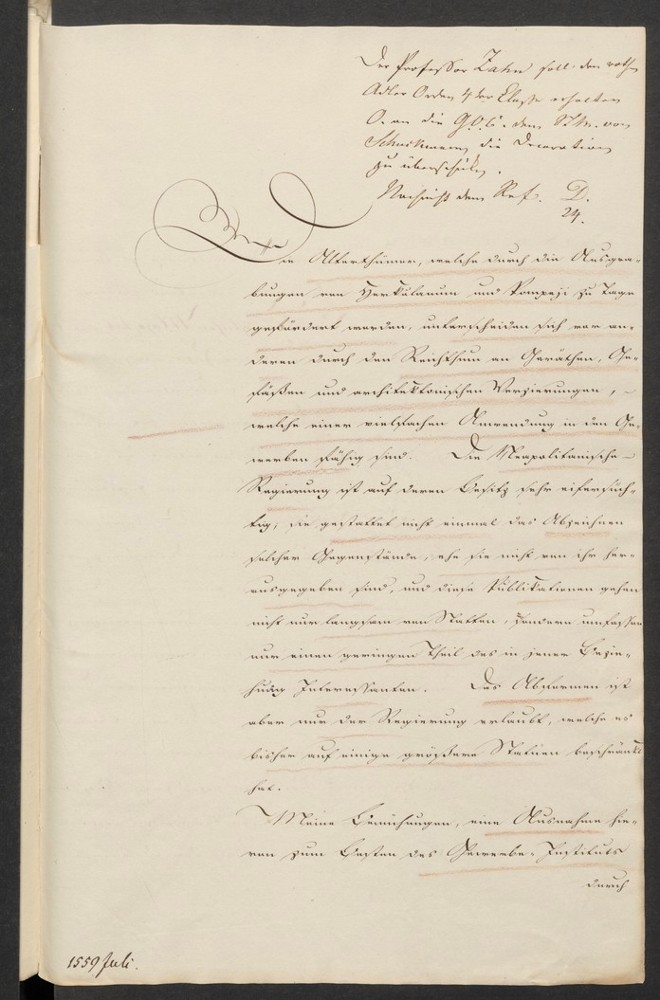 Der Professor Zahn soll den roth
Adler Orden 4ter Classe erhalten
O. an die G.O.C. dem StM. von
Schuckmann die Decoration
zu überschicken.
Nachricht dem Ref. D.
24.
Die Alterthümer, welche durch die Ausgra-
bungen von Herkulanum und Pompeji zu Tage
gefördert werden, unterscheiden sich vor an-
deren durch den Reichthum an Geräthen, Ge-
fäßen und architektonischen Verzierungen,
welche einer vielfachen Anwendung in den Ge-
werben fähig sind. Die Neapolitanische
Regierung ist auf deren Besitz sehr eifersüch-
tig, sie gestattet nicht einmal das Abzeichnen
solcher Gegenstände, ehe sie nicht von ihr her-
ausgegeben sind, und diese Publikationen gehen
nicht nur langsam von Statten, sondern umfassen
nur einen geringen Theil des in jener Bezie-
hung Interessanten. Das Abformen ist
aber nur der Regierung erlaubt, welche es
bisher auf einige größere Statuen beschränkt
hat.
Meine Bemühungen, eine Ausnahme hie-
von zum Besten des Gewerbe-Instituts
durch
1559 Juli.